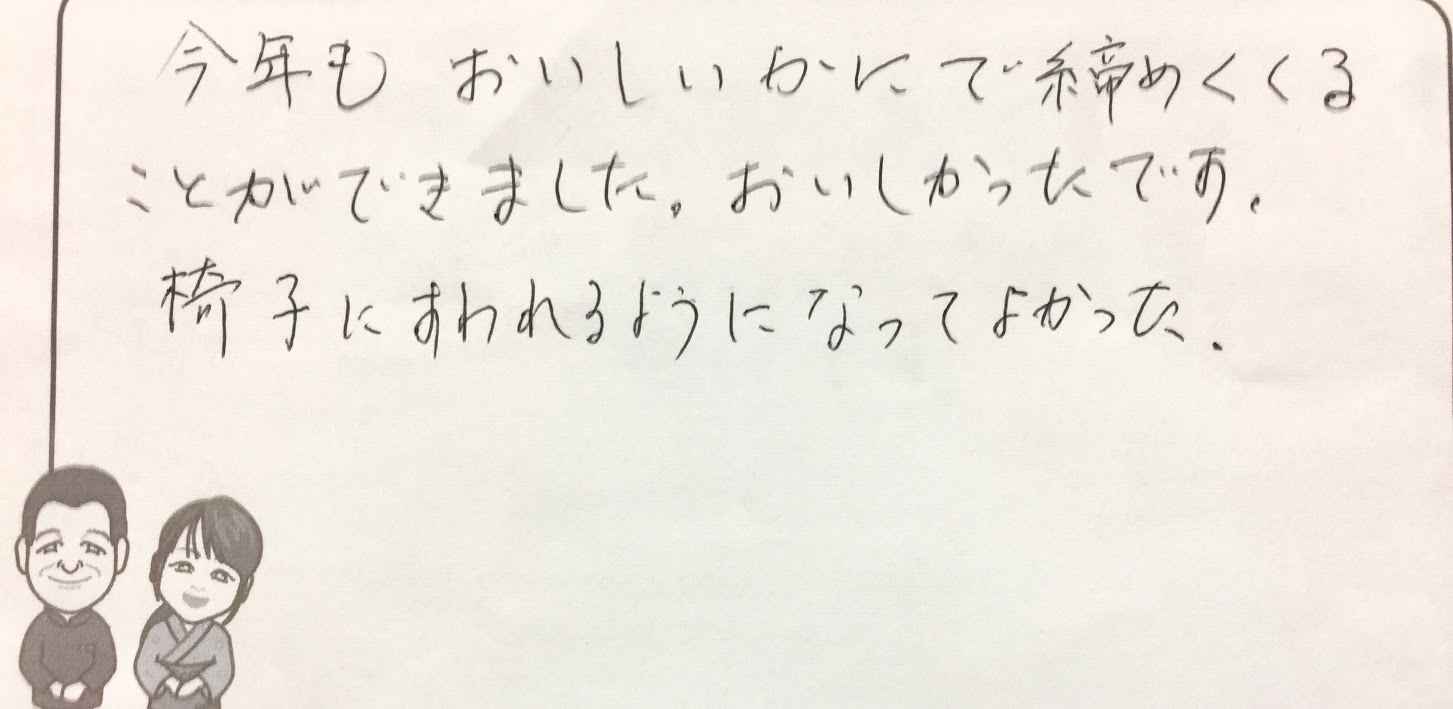 今年も おいしいかにで締めくくる
ことができました。おいしかったです.
椅子にすわれるようになってよかった.